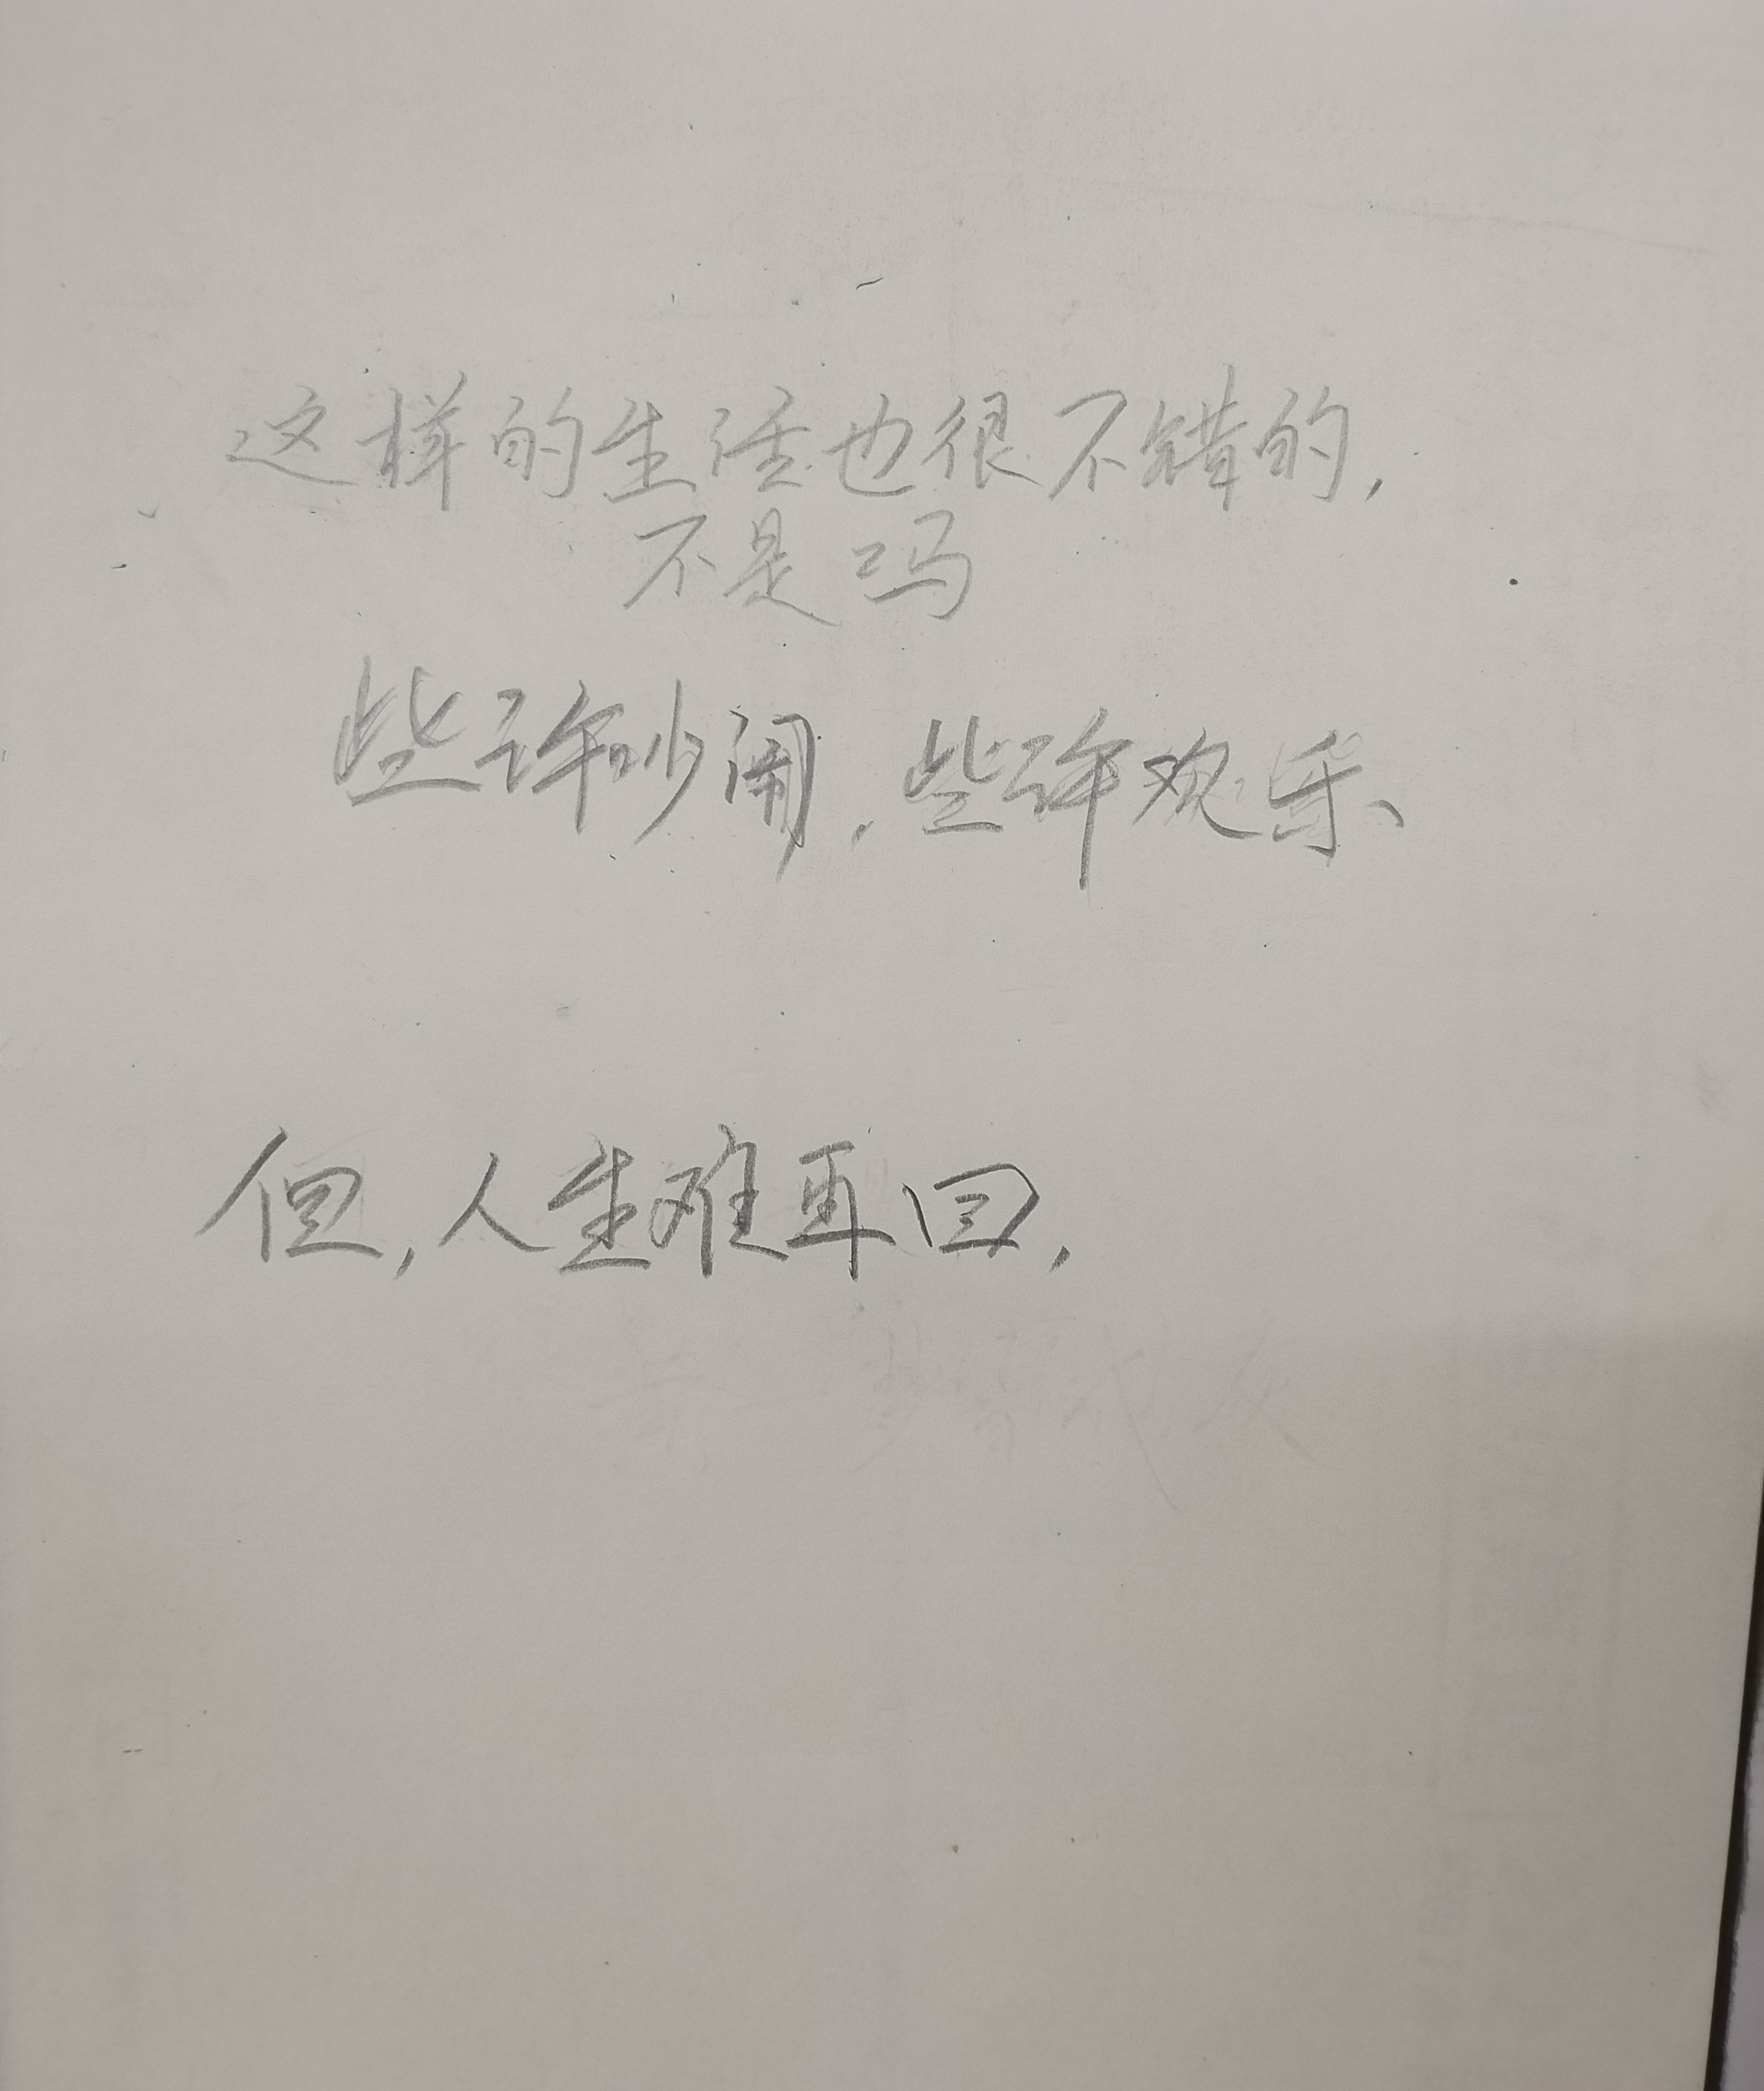 这样的生活也很不错的,
不是吗
些许吵闹,些许欢乐
但,人生难再回,